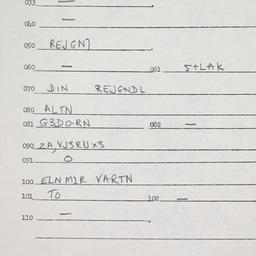 033 —
040 —
050 REJGN7
060 — 061 5+LAK
070 DIN REJGNDL
080 ALTN
081 G3DO-RN 082 —
090 ZA,VJ3RUX3
091 O
100 ELNM1R VARTN
101 TO 102 —
110 —